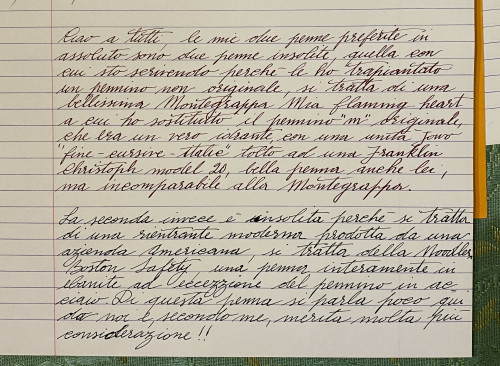 Ciao a tutti, le mie due penne preferite in
assoluto sono due penne insolite, quella con
cui sto scrivendo perchè le ho trapiantato
un pennino non originale, si tratta di una
bellissima Montegrappa Mia flammy heart
a cui ho sostituito il pennino "m" originale,
che era un vero idrante, con una unità Jowo
"fine cursive italic" tolto ad una Franklin
Christoph model 20, bella penna anche lei,
ma incomparabile alla Montegrappa.
La seconda invece è insolita perchè si tratta
di una rientrante moderna prodotta da una
azienda Americana, si tratta della Noodler
Boston Safety, una penna interamente in
ebanite ad eccezzione del pennino in ac-
ciaio. Di questa penna si parla poco qui
da noi e secondo me, merita molta più
considerazione!!